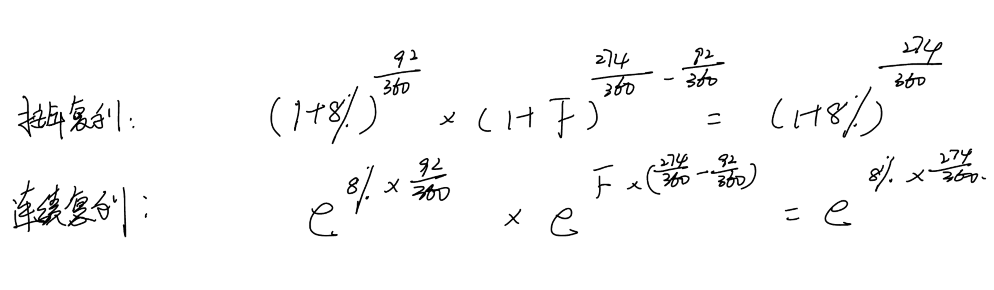 按年复利: (1+8%)^{92/360} × (1+F)^{274/360 - 92/360} = (1+8%)^{274/360}
连续复利: e^{8% × 92/360} × e^{F×(274/360 - 92/360)} = e^{8% × 274/360}